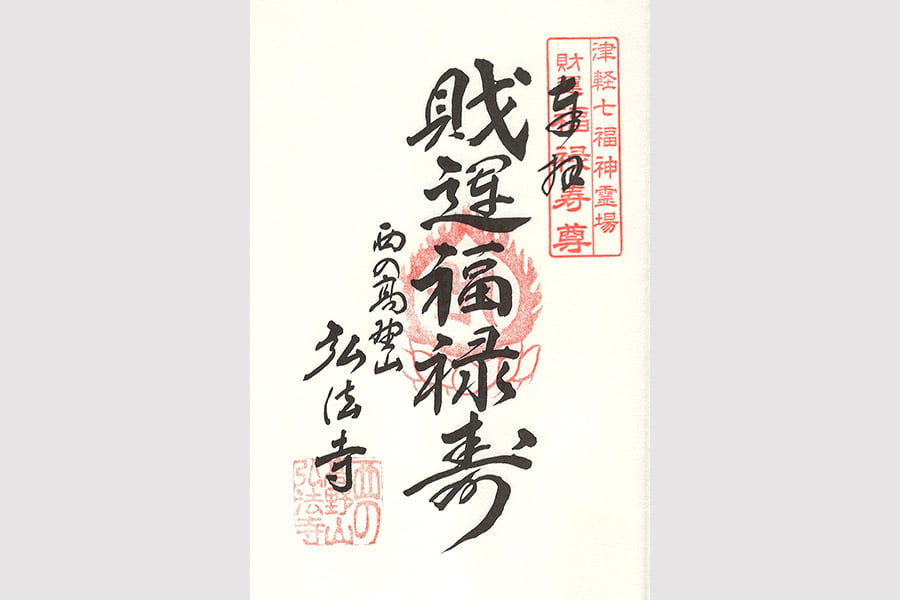 津軽七福神霊場
財運福禄寿尊
奉拝
財運福禄寿
西の高野山
弘法寺
西の
高野山
弘法寺